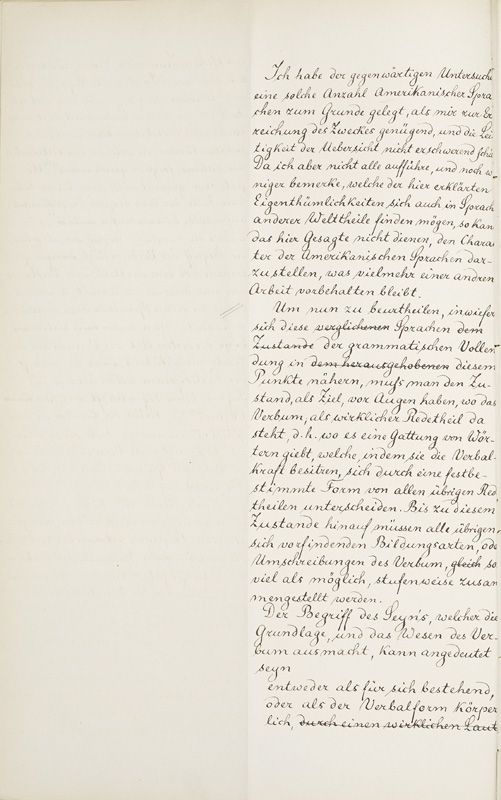 Ich habe der gegenwärtigen Untersuch
eine solche Anzahl Amerikanischer Spra
chen zum Grunde gelegt, als mir zur Er
reichung des Zweckes genügend, und die Lei
tigkeit der Uebersicht nicht erschwerend schi
Da ich aber nicht alle aufführe, und noch w
niger bemerke, welche der hier erklärten
Eigenthümlichkeiten sich auch in Sprach
anderer Welttheile finden mögen, so kan
das hier Gesagte nicht dienen, den Chara
ter der Amerikanischen Sprachen dar-
zustellen, was vielmehr einer andren
Arbeit vorbehalten bleibt.
Um nun zu beurtheilen, inwiefer
sich diese verglichenen Sprachen dem
Zustande der grammatischen Vollen
dung in dem herausgehobenen diesem
Punkte nähern, muſs man den Zu-
stand, als Ziel, vor Augen haben, wo das
Verbum, als wirklicher Redetheil da
steht, d. h. wo es eine Gattung von Wör-
tern giebt, welche, indem sie die Verbal-
kraft besitzen, sich durch eine festbe-
stimmte Form von allen übrigen Red
theilen unterscheiden. Bis zu diesem
Zustande hinauf müssen alle übrigen,
sich vorfindenden Bildungsarten, ode
Umschreibungen des Verbum, gleich so
viel als möglich, stufenweise zusam
mengestellt werden.
Der Begriff des Seyns, welcher die
Grundlage, und das Wesen des Ver-
bum ausmacht, kann angedeutet
seyn
entweder als für sich bestehend,
oder als der Verbalform körper
lich, durch einen wirklichen Laut